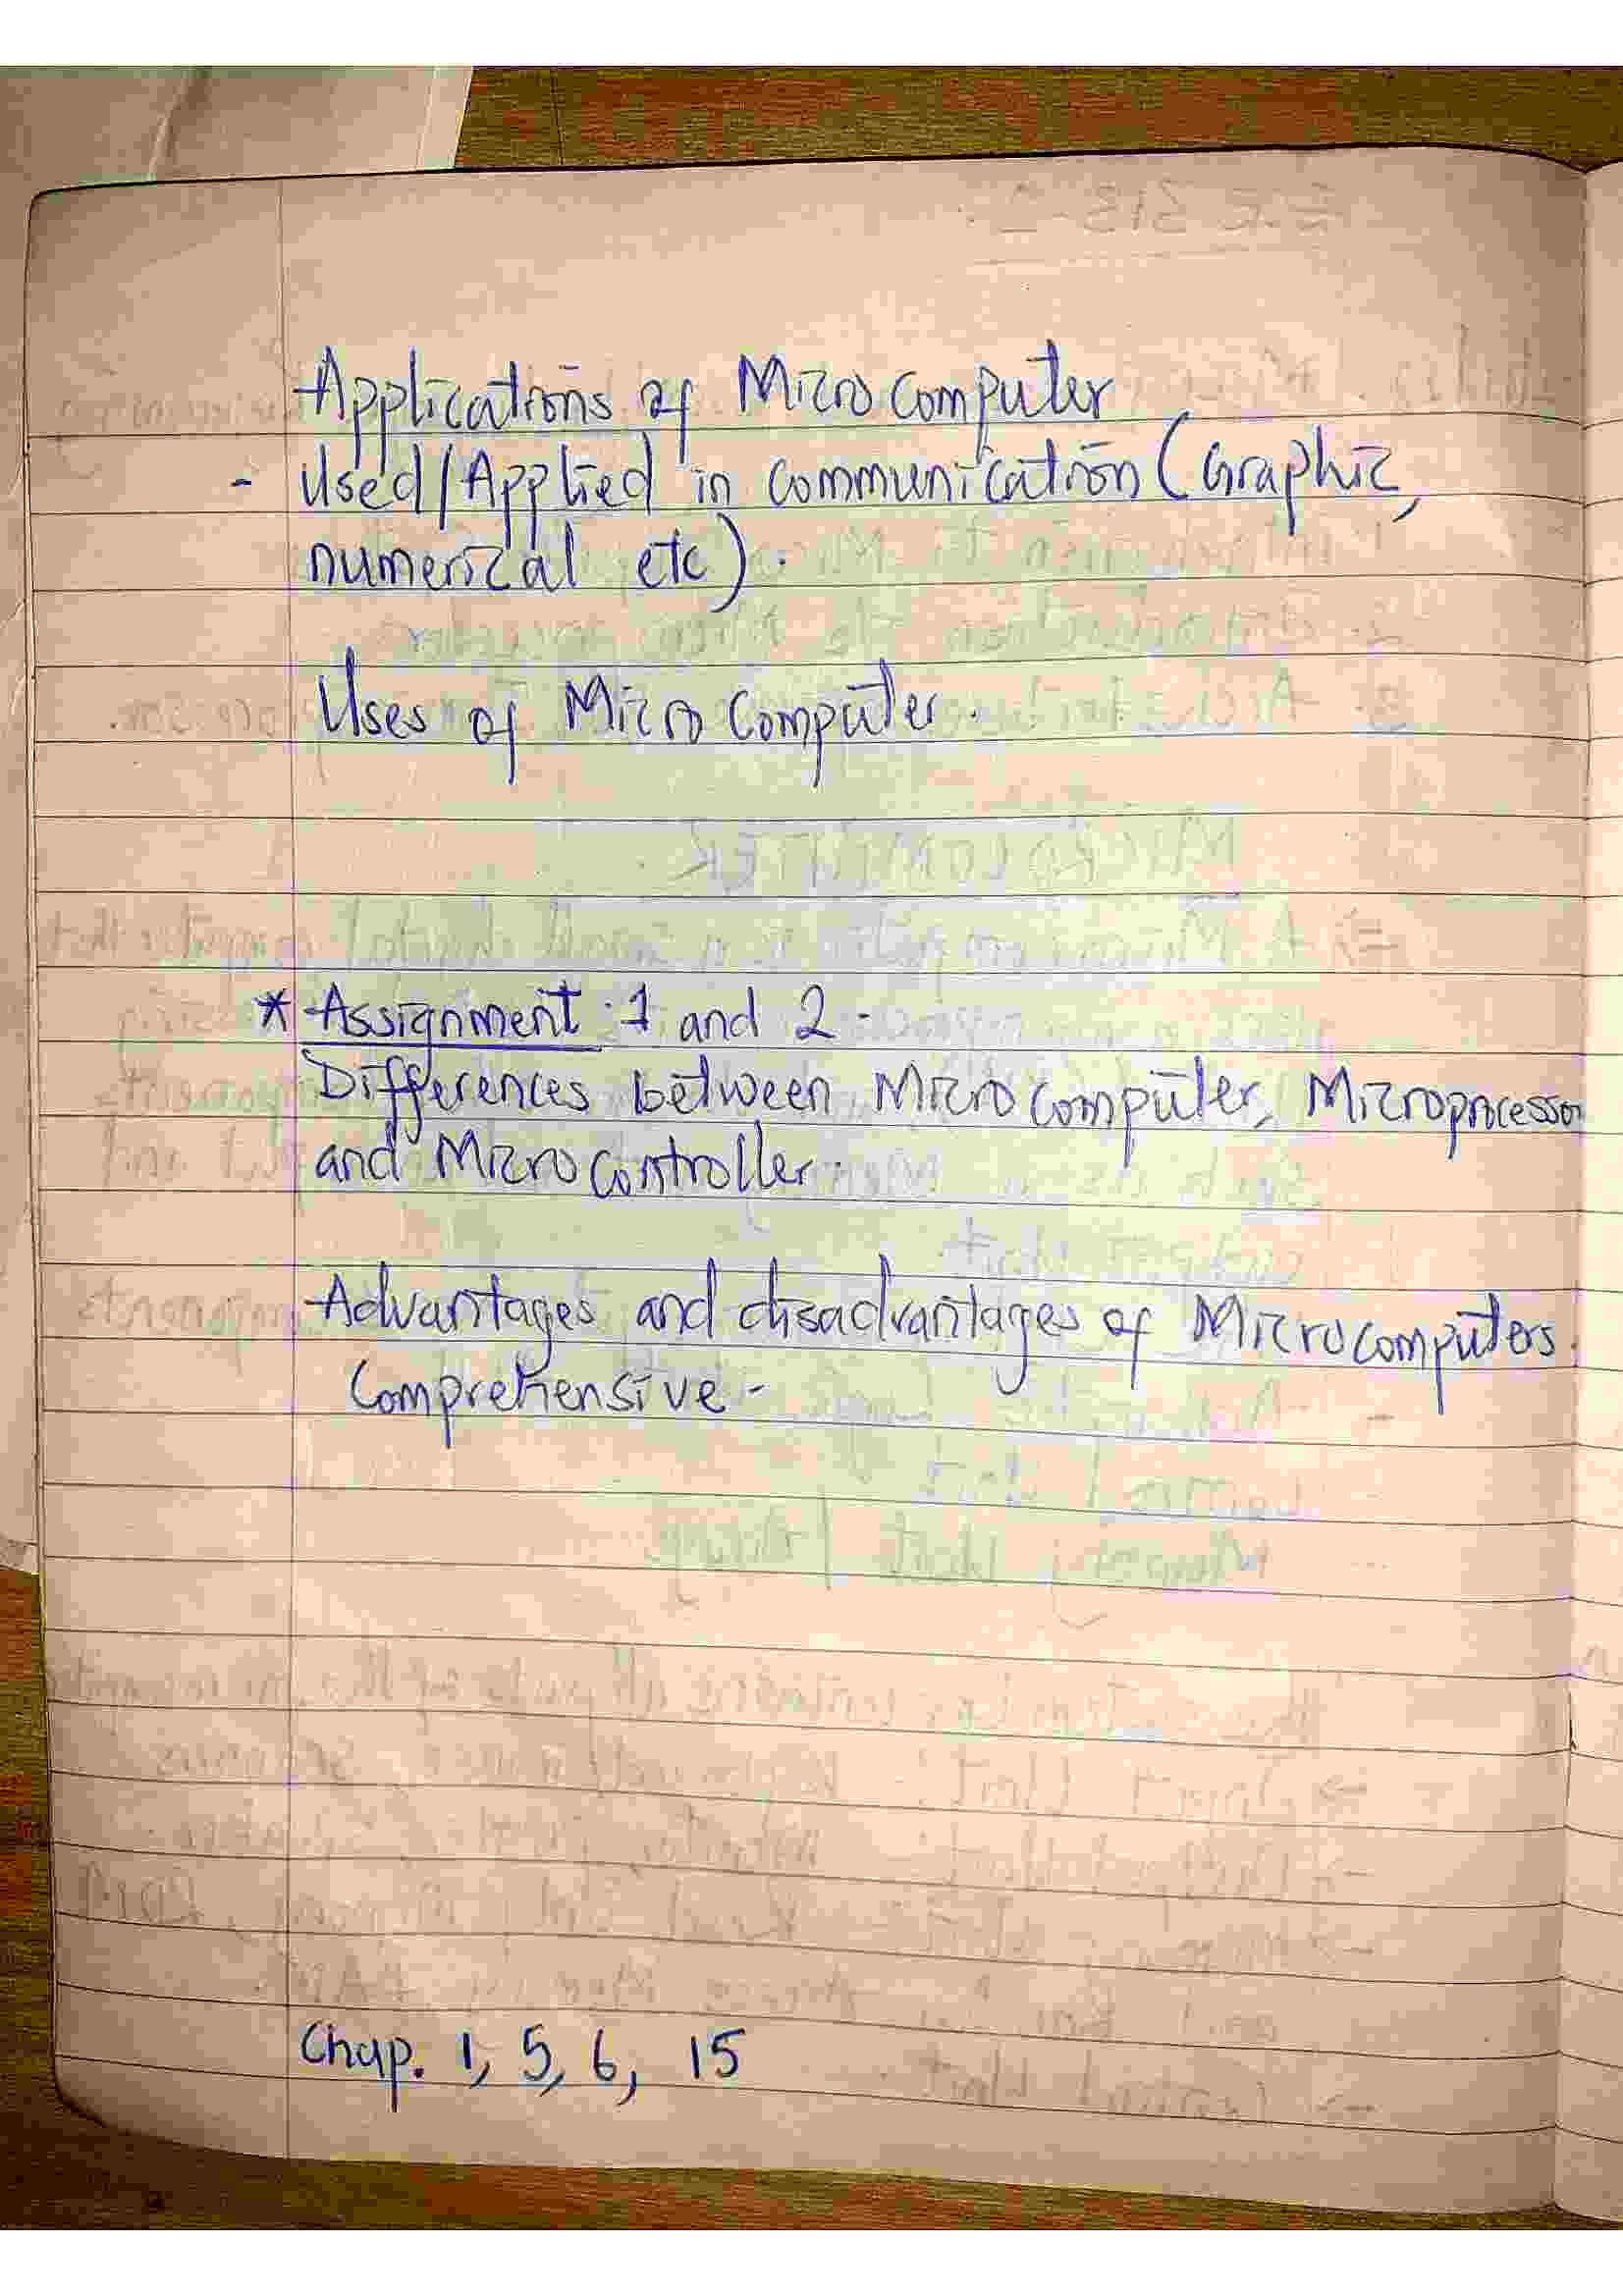 Applications of Micro computer
- Used/Applied in communication (Graphic,
numerical etc).
Uses of Micro computer.
* Assignment 1 and 2.
Differences between Microcomputer, Microprocessor
and Microcontroller.
Advantages and disadvantages of Microcomputers.
Comprehensive -
Chap. 1, 5, 6, 15